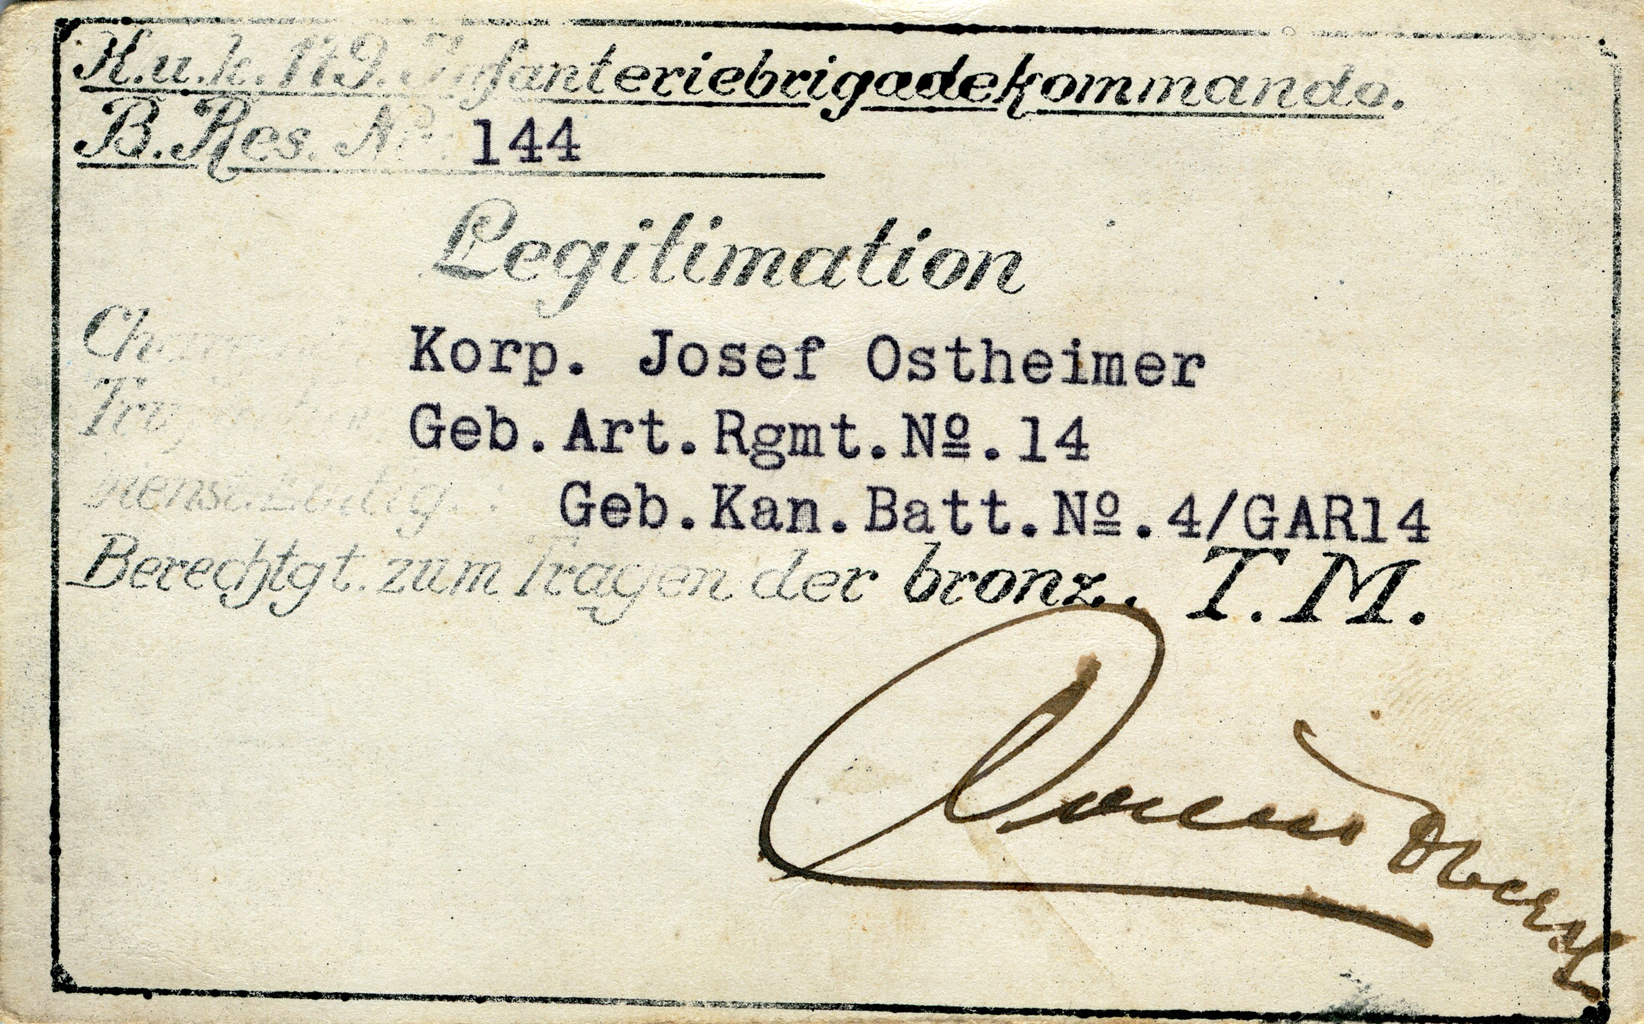 K.u.k. 119. Infanteriebrigadekommando.
B. Res. No. 144
Legitimation
Korp. Josef Ostheimer
Geb.Art.Rgmt.No.14
Geb.Kan.Batt.No.4/GAR14
Berechtgt. zum Tragen der bronz. T.M.
Oberst